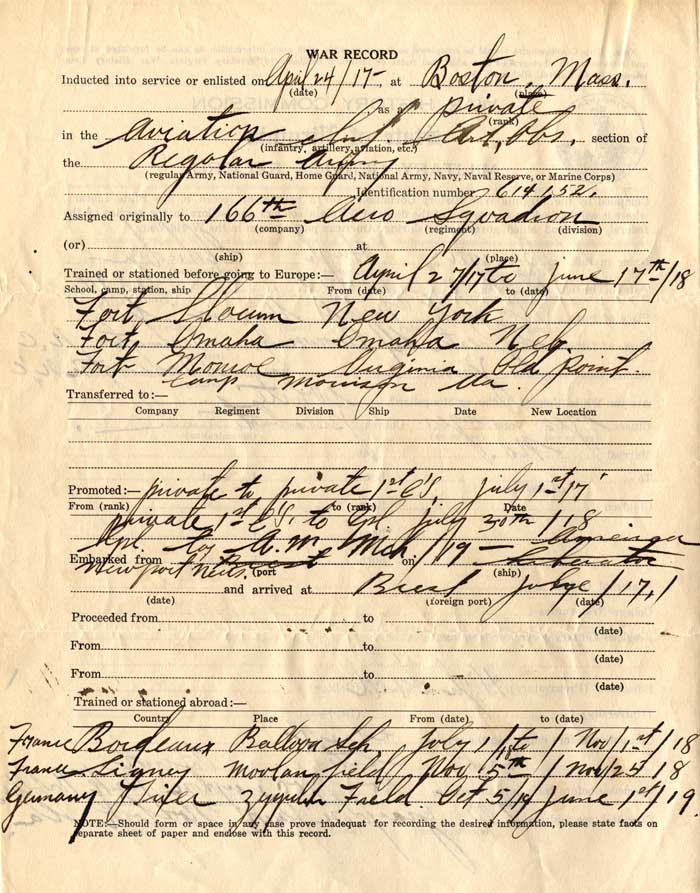 WAR RECORD
Inducted into service or enlisted on April 24/17 at Boston, Mass.
(date) (place)
as a private
(rank)
in the Aviation Art. Obs. section of
(infantry, artillery, aviation, etc.)
the Regular Army
(regular Army, National Guard, Home Guard, National Army, Navy, Naval Reserve, or Marine Corps)
Identification number 614152.
Assigned originally to 166th Aero Squadron
(company) (regiment) (division)
(or) at
(ship) (place)
Trained or stationed before going to Europe:— April 27/17 to June 17th/18
School, camp, station, ship From (date) to (date)
Fort Slocum New York
Fort Omaha Omaha Neb.
Fort Monroe Virginia Old Point.
Camp Morrison Va.
Transferred to:—
Company Regiment Division Ship Date New Location
Promoted:— private to private 1st C'S, July 1st 17
From (rank) to (rank) Date
private 1st C'S, to Cpl July 30th /18
Cpl. to Mch /19 —
Embarked from Brest on
Newport News. (port (ship)
and arrived at Brest /17,1
(date) (foreign port) (date)
Proceeded from to
(date)
From to
(date)
From to
(date)
Trained or stationed abroad:—
Country Place From (date) to (date)
France Bordeaux Balloon Sch. July 1/ to Nov/1st/18
France field Nov 5th Nov/25 18
Germany Field Oct 5/ June 1st/19.
NOTE:—Should form or space in any case prove inadequat for recording the desired information, please state facts on
separate sheet of paper and enclose with this record.